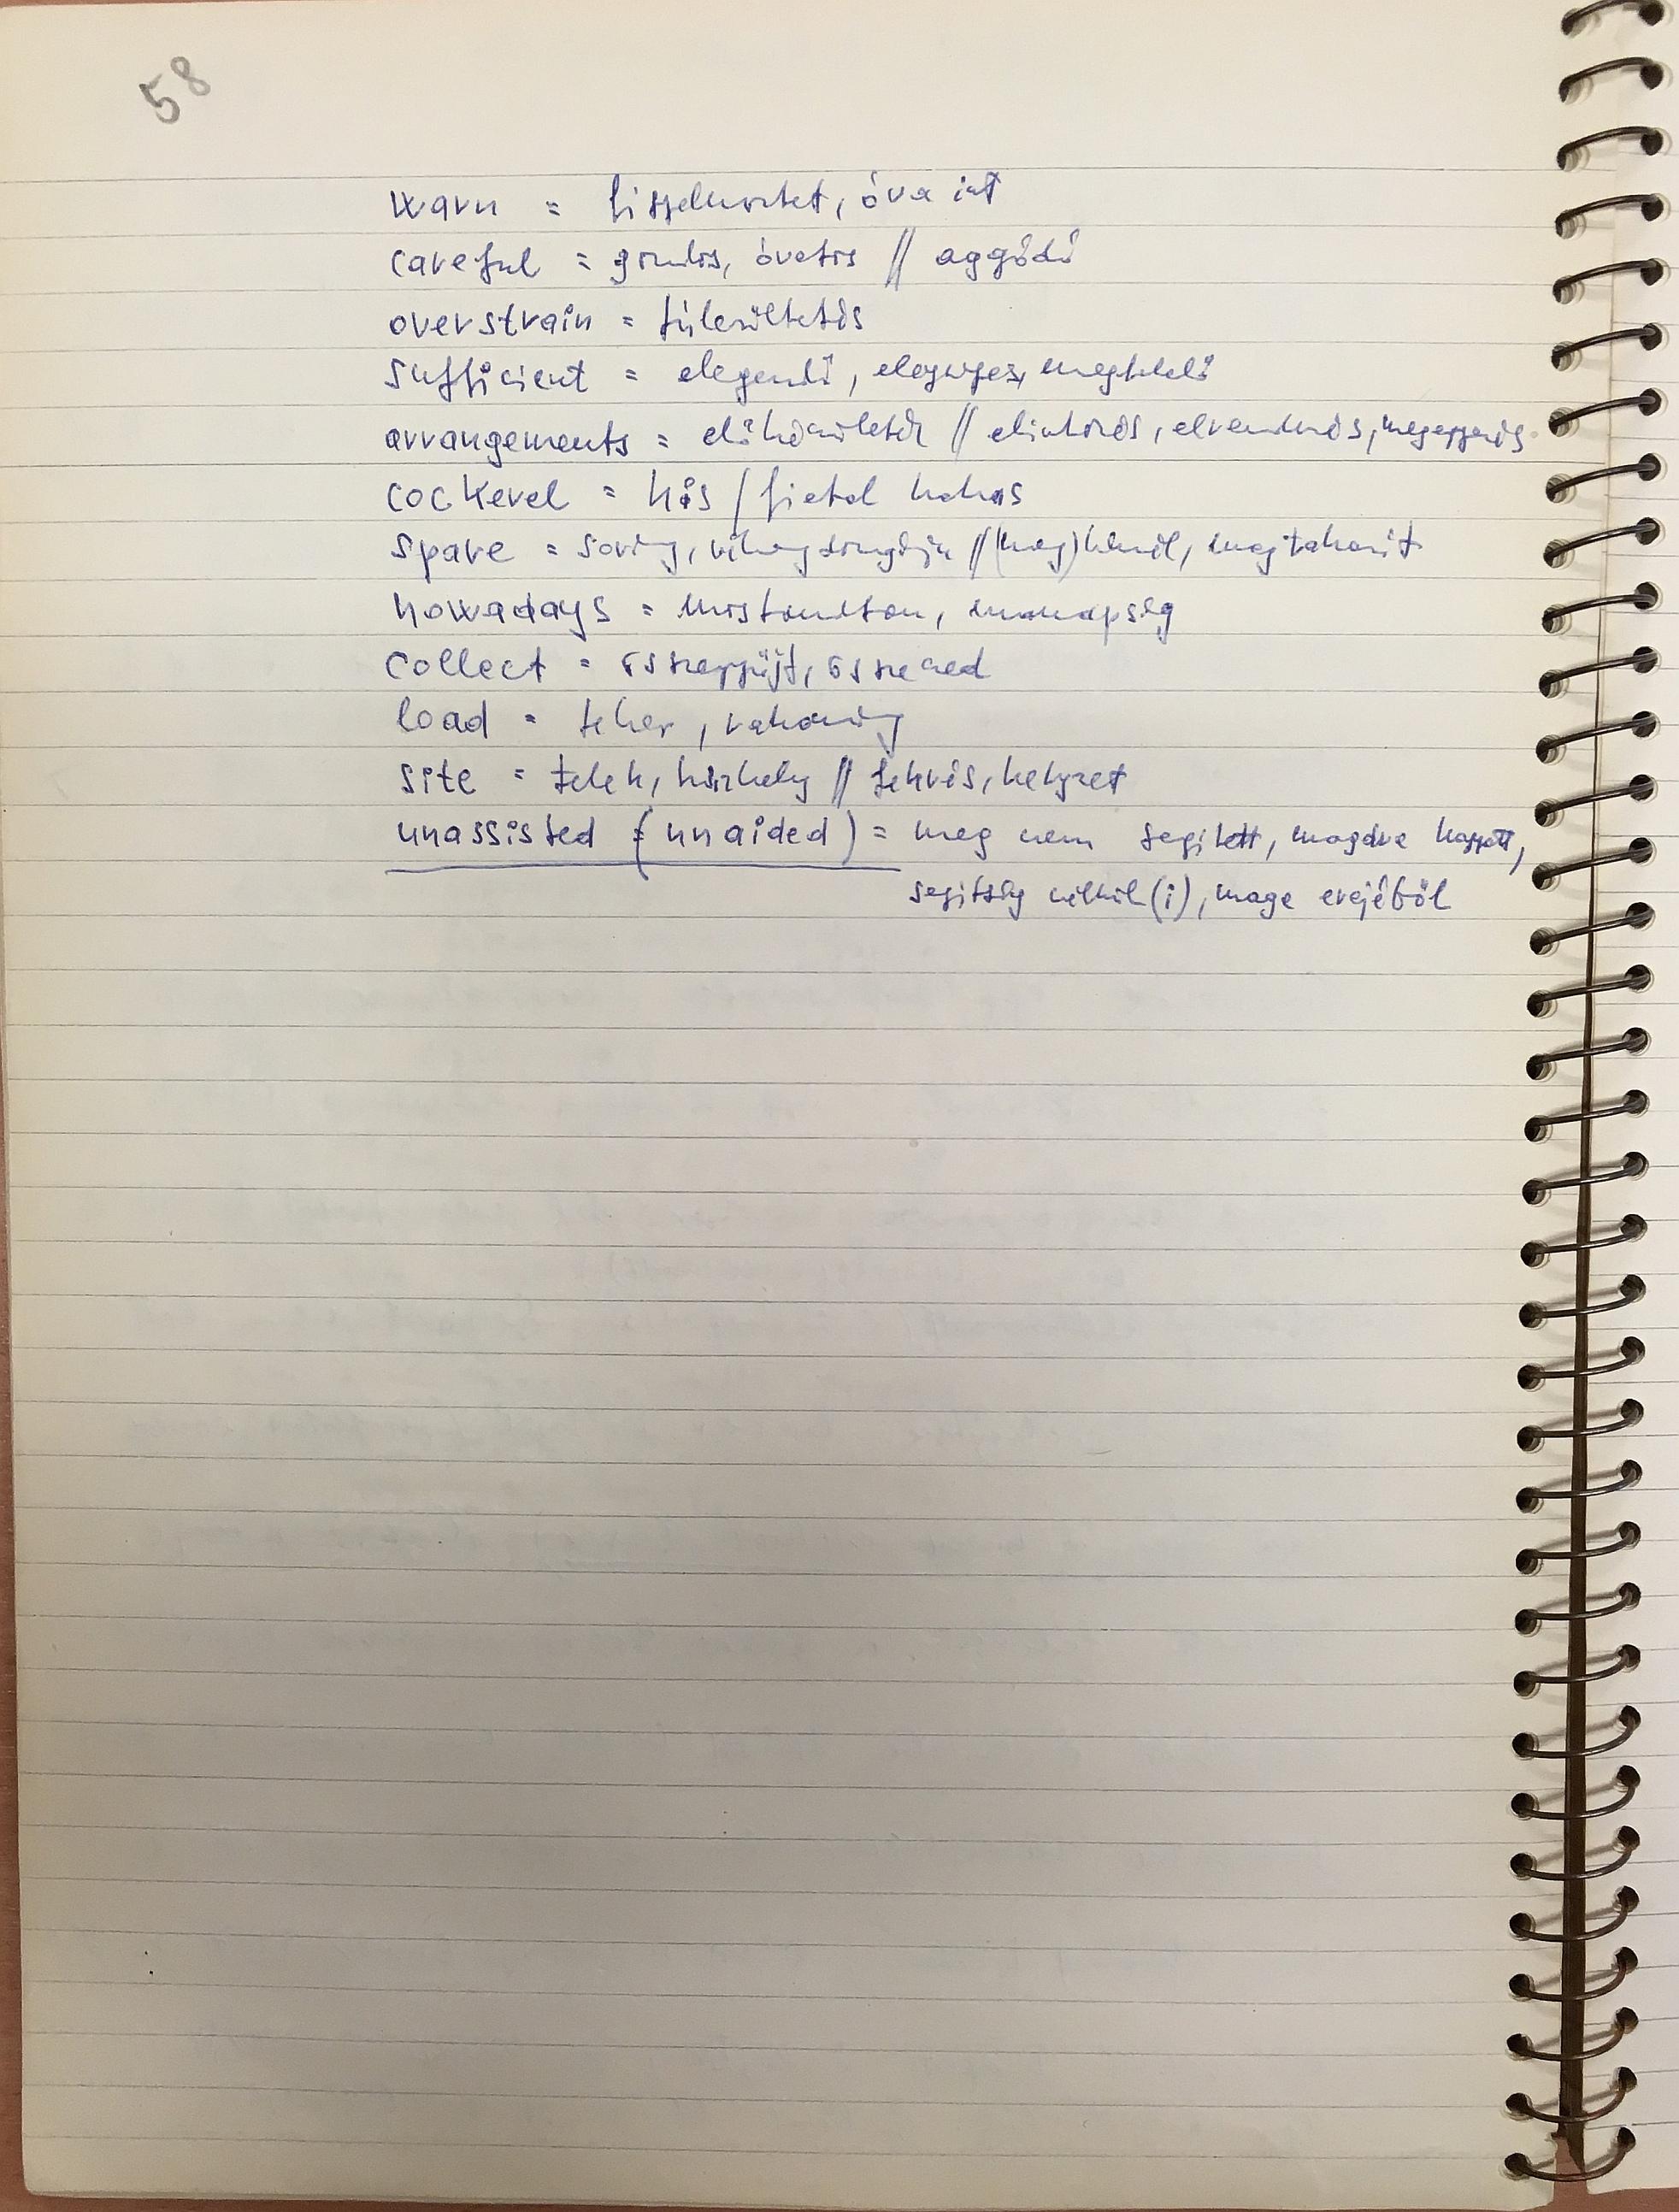 58
warn = figyelmeztet, óva int
careful = gondos, óvatos // aggódó
overstrain = túlerőltetés
sufficient = elegendő, elégséges, megfelelő
arrangements = előkészületek // elintézés, elrendezés, megegyezés
cockerel = kis / fiatal kakas
spare = sovány, vékonydongájú // (meg)kímél, megtakarít
nowadays = mostanában, manapság
collect = összegyűjt, összeszed
load = teher, rakomány
site = telek, házhely // fekvés, helyzet
unassisted (unaided) = meg nem segített, magára hagyott,
segítség nélkül(i), maga erejéből